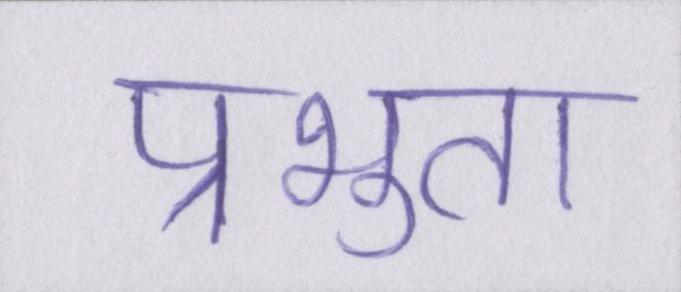 प्रभुता